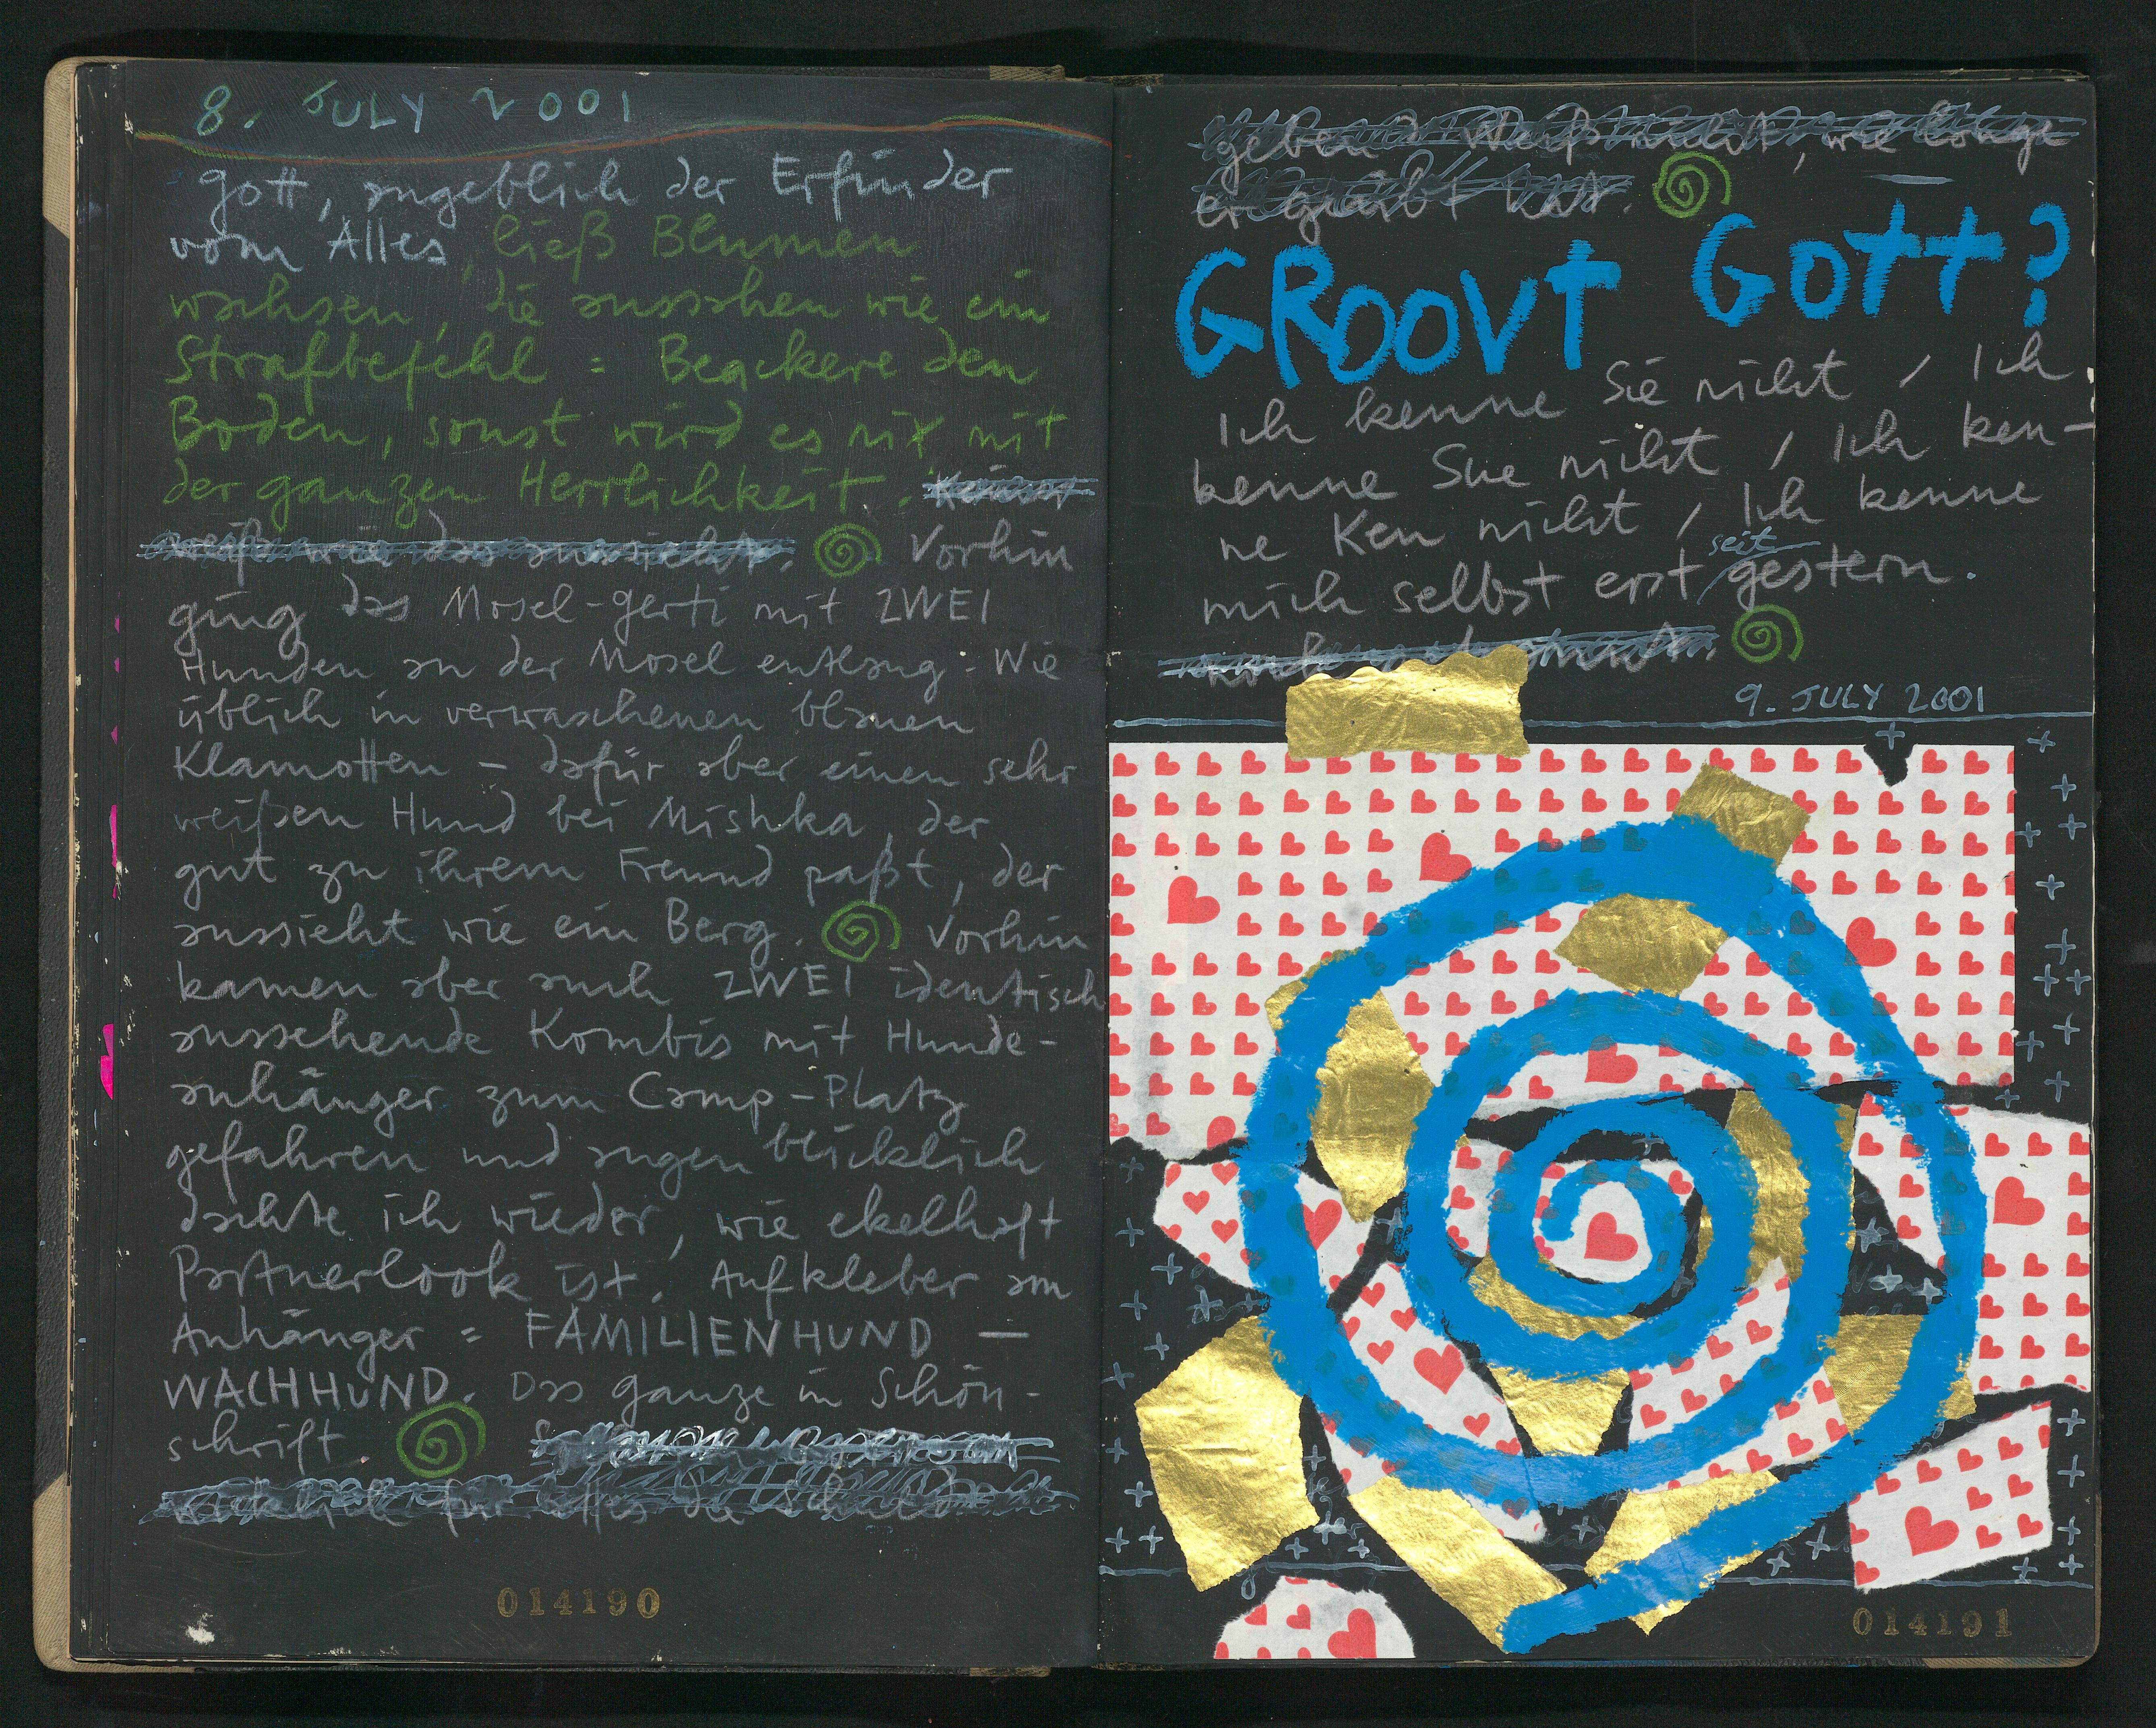 8. JULY 2001
Gott, angeblich der Erfinder
vom Alles, ließ Blumen
wachsen, die aussahen wie ein
Strafbefehl = Beackere den
Boden, sonst wird es nix mit
der ganzen Herrlichkeit. Keiner
weiß wie das aussieht. Vorhin
ging das Mosel-Gerti mit ZWEI
Hunden an der Mosel entlang. Wie
üblich in verwaschenen blauen
Klamotten – dafür aber einen sehr
weißen Hund bei Mishka, der
gut zu ihrem Freund paßt, der
aussieht wie ein Berg. Vorhin
kamen aber auch ZWEI identisch
aussehende Kombis mit Hunde-
anhänger zum Camp-Platz
gefahren und augenblicklich
dachte ich wieder, wie ekelhaft
Partnerlook ist. Aufkleber am
Anhänger = FAMILIENHUND –
WACHHUND. Das ganze in Schön-
schrift
für alles die
014190
geben. Weiß nicht, wie lange
er geübt hat.
GROOVT GOTT?
Ich kenne Sie nicht / Ich
kenne Sue nicht / Ich ken-
ne Ken nicht / Ich kenne
seit
mich selbst erst gestern.
9. JULY 2001
014191